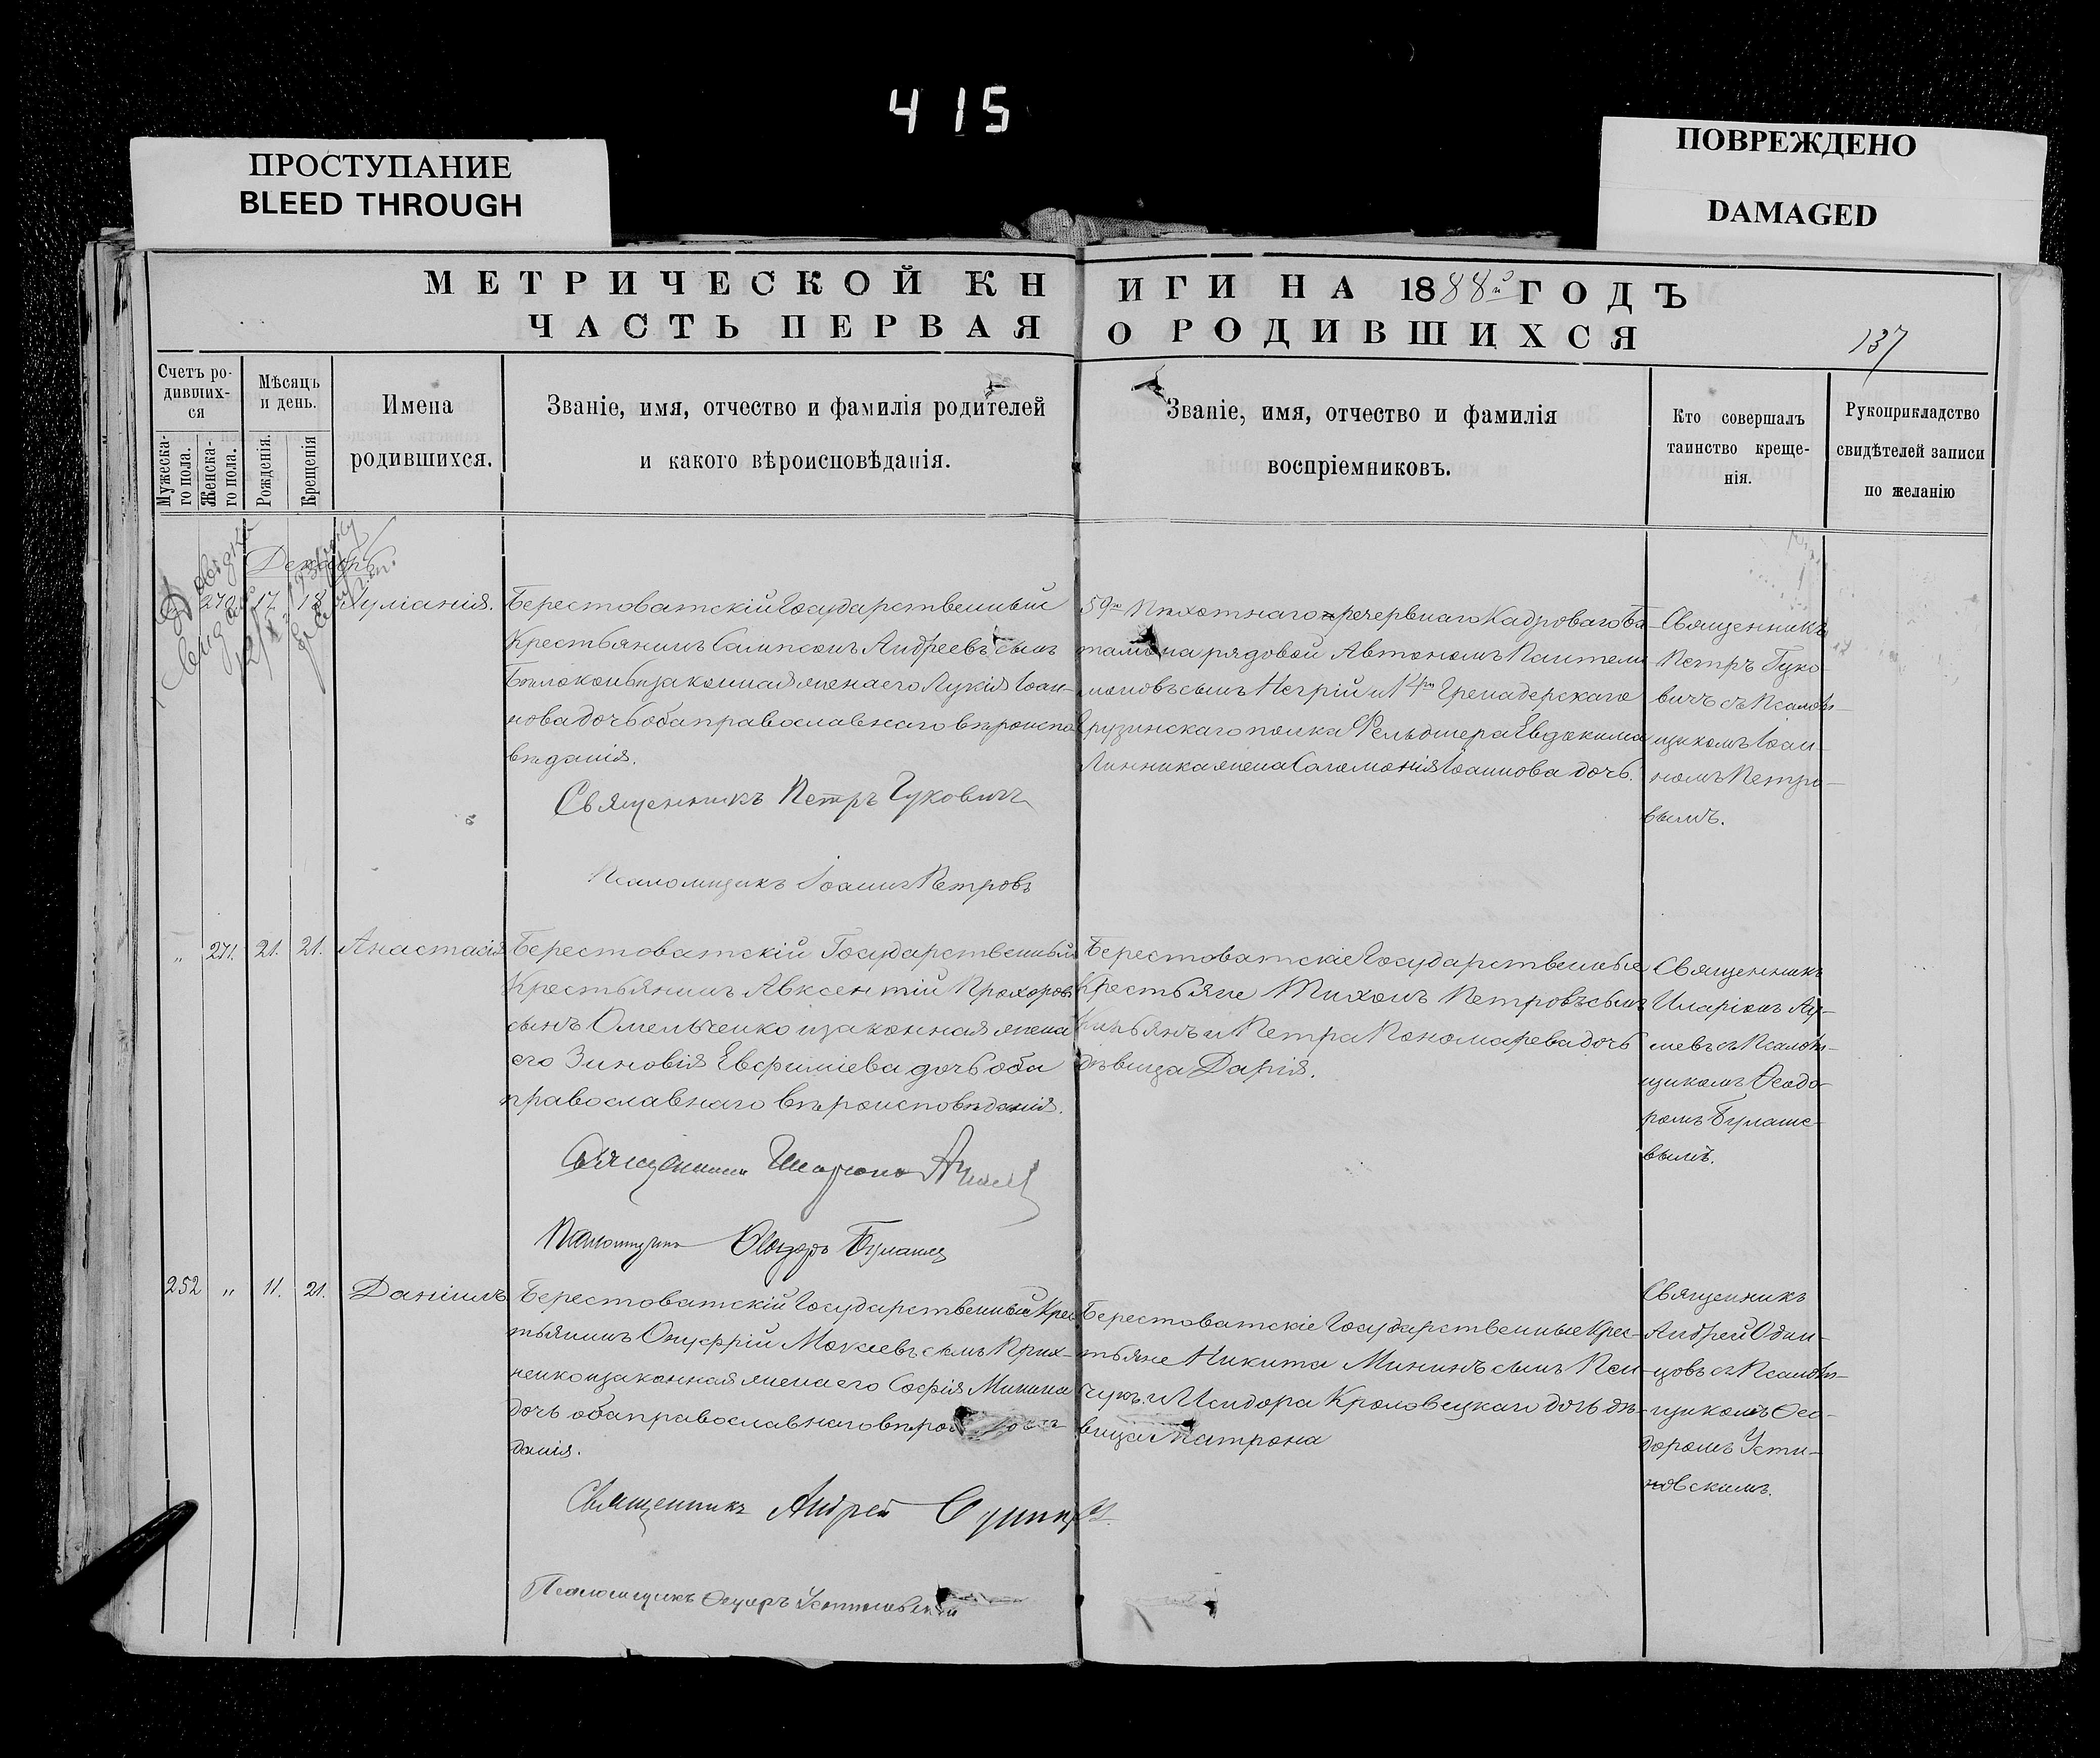 415
ПРОСТУПАНИЕ
BLEED THROUGH
ПОВРЕЖДЕНО
DAMAGED
МЕТРИЧЕСКОЙ КН
ИГИ НА 1888й ГОДЪ
ЧАСТЬ ПЕРВАЯ
О РОДИВШИХСЯ
137
Счетъ ро-
дивших-
ся
Мужеска-
го пола.
Женска-
го пола.
Мѣсяцъ
и день.
Рожденія.
Крещенія
Имена
родившихся.
Званіе, имя, отчество и фамилія родителей
и какого вѣроисповѣданія.
Званіе, имя, отчество и фамилія
воспріемниковъ.
Кто совершалъ
таинство креще-
нія.
Рукоприкладство
свидѣтелей записи
по желанію
Декабрь
270 17. 18 Іуліанія.
Берестоватскій Государственный
Крестьянинъ Сампсонъ Андреевъ сынъ
Бѣлоконь и законная жена его Лукія Іоан-
нова дочь оба православнаго вѣроиспо
вѣданія.
Священникъ Петръ Гукович
Псаломщикъ Іоаннъ Петровъ
59го Пѣхотнаго резервнаго Кадроваго Ба
таліона рядовой Автономъ Пантели
моновъ сынъ Негрій и 14го Гренадерскаго
Грузинскаго полка Фельдшера Евдокима
Линника жена Саломонія Іоаннова дочь.
Священникъ
Петръ Гуко-
вичъ съ Псалом-
щикомъ Іоан-
номъ Петро-
вымъ.
" 271. 21. 21. Анастасія
Берестоватскій Государственный
Крестьянинъ Авксентій Прохоровъ
сынъ Омельченко и законная жена
его Зиновія Евфиміева дочь оба
православнаго вѣроисповѣданія.
Берестоватскіе Государственные
Крестьяне Тихонъ Петровъ сынъ
и Петра Пономарева дочь
дѣвица Дарія.
Священникъ
Иларіонъ
съ Псалом-
щикомъ Ѳеодо-
ромъ Булаше-
вымъ.
252 " 11. 21. Даніилъ
Берестоватскій Государственный Крес
тьянинъ Онуфрій Мокіевъ сынъ Прих-
ненко и законная жена его Софія Минина
дочь оба православнаго
данія.
Священникъ Андрей Одинцовъ
Псаломщикъ Ѳеодоръ Устиновскій
Берестоватскіе Государственные Крес-
тьяне Никита Мининъ сынъ
и Исидора Кроловецкаго дочь дѣ-
вица Матрона
Священникъ
Андрей Один-
цовъ съ Псалом-
щикомъ Ѳео-
доромъ Усти-
новскимъ.